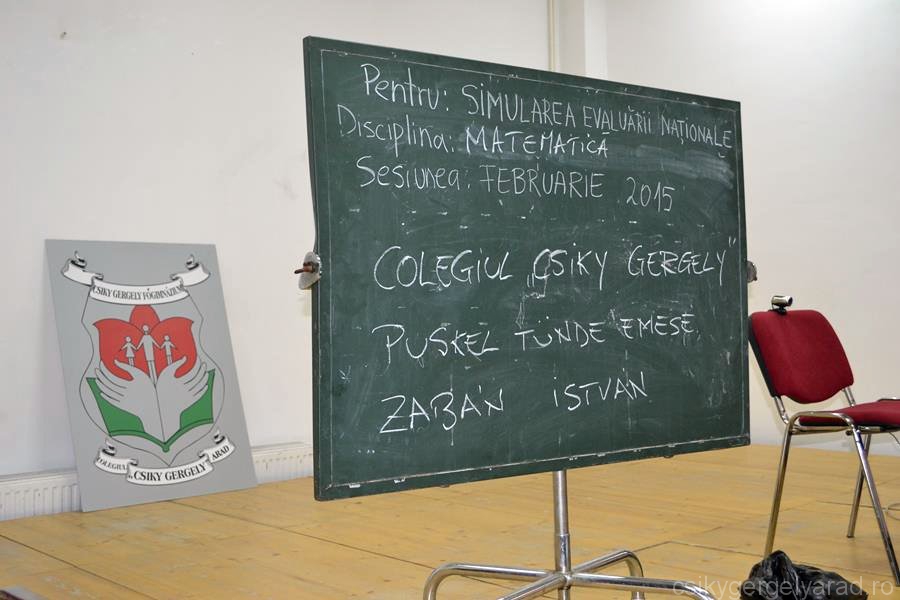 Pentru: SIMULAREA EVALUĂRII NAȚIONALE
Disciplina: MATEMATICĂ
Sesiunea: FEBRUARIE 2015
COLEGIUL „CSIKY GERGELY”
PUSKEL TÜNDE EMESE
ZABÁN ISTVÁN
CSIKY GERGELY FŐGIMNÁZIUM
COLEGIUL „CSIKY GERGELY” ARAD
csikygergelyarad.ro